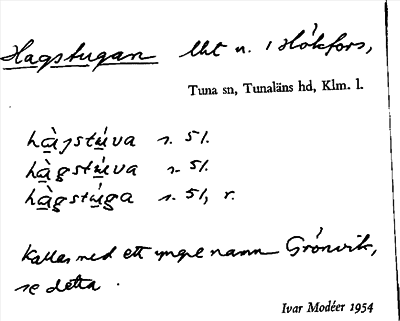 Hagstugan lht u. 1 Hökfors,
Tuna sn, Tunaläns hd, Klm. l.
hàjstúva s. 51.
hàgstúva s. 51.
hàgstúga s. 51, r.
Kallas med ett yngre namn Grönvik,
se detta.
Ivar Modéer 1954